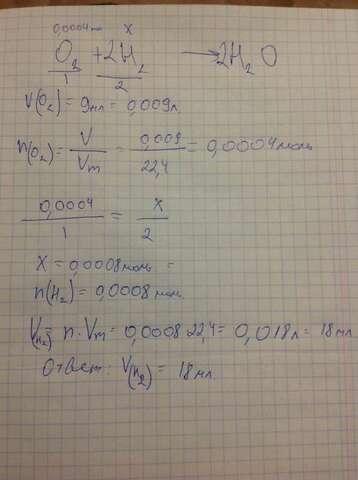 0,0004м X
O₂ + 2H₂ → 2H₂O
1 2
V(O₂) = 9мл = 0,009л.
n(O₂) = V/Vm = 0,009/22,4 = 0,0004моль
0,0004/1 = X/2
X = 0,0008моль =
n(H₂) = 0,0008 моль.
V(H₂) = n · Vm = 0,0008·22,4 = 0,018л = 18мл
Ответ: V(H₂) = 18мл.